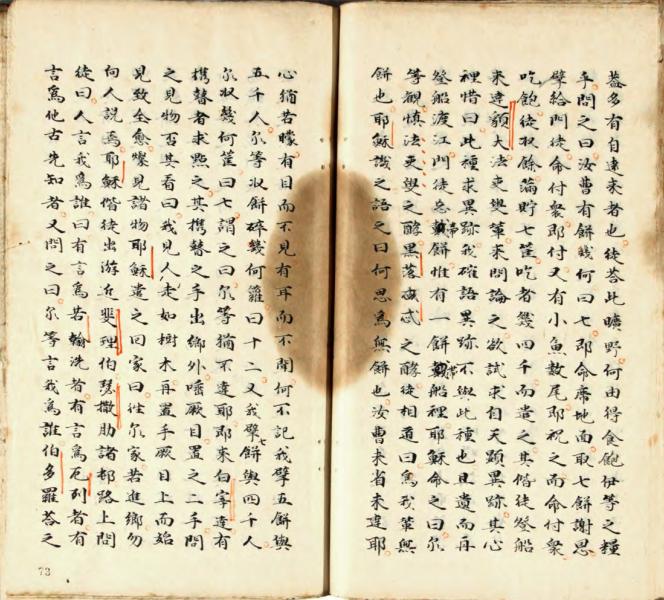 蓋多有自遠来者也徒荅此曠野何由得食飽伊等之糧
乎問之曰汝曹有餅幾何曰七即命席地面取七餅謝恩
擘給門徒命付衆即付又有小魚数尾即祝之而命付衆
吃飽徒収餘滿貯七筐吃者幾四千而遣之其偕徒登船
来達額大法吏叟輩来問論之欲試求自天顯異跡其心
裡惜曰此種求異跡我確語異跡不與此種也且遺而再
登船渡江門徒忘戴餅惟有一餅戴船裡耶穌命之曰尔
等觀慎法吏叟之酵黒落忒之酵徒相道曰為我輩無
餅也耶穌識之語之曰何思為無餅也汝曹未省未達耶
心猶若矇有目而不見有耳而不聞何不記我擘五餅與
五千人尔等収餅碎幾何籮曰十二又我擘七餅與四千人
尔収幾何筐曰七謂之曰尔等猶不達耶即来白宰達有
携瞽者求㸃之其携瞽之手出鄉外唾厥目置之二手問
之見物否其看曰我見人走如樹木再置手厥目上而始
見致全愈燦見諸物耶穌遣之回家曰徃尔家若進鄉勿
向人説焉耶穌偕徒出游近斐理伯瑟撒肋諸邨路上問
徒曰人言我為誰曰有言為若翰洗者有言為厄列者有
言為他古先知者又問之曰尔等言我為誰伯多羅荅之
73